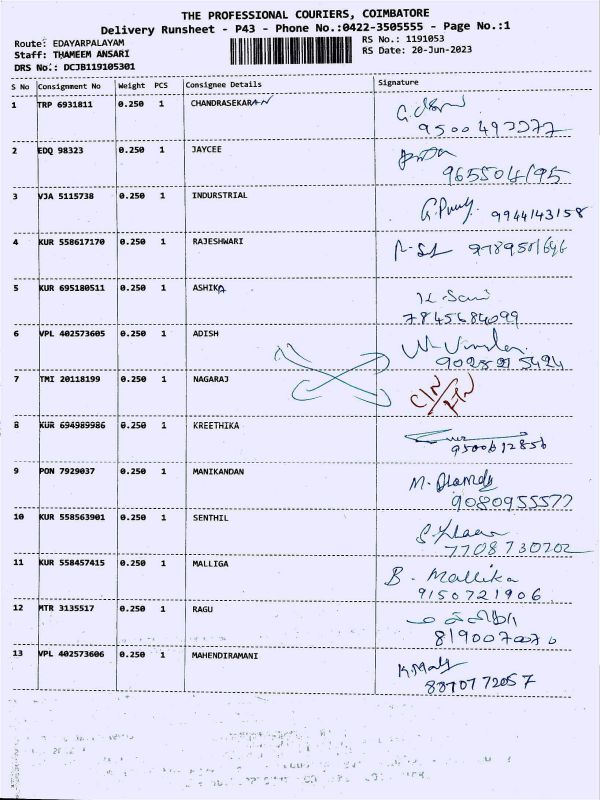 THE PROFESSIONAL COURIERS, COIMBATORE
Delivery Runsheet - P43 - Phone No.:0422-3505555 - Page No.:1
Route: EDAYARPALAYAM
RS No.: 1191053
Staff: THAMEEM ANSARI
RS Date: 20-Jun-2023
DRS No.: DCJB119105301
S No Consignment No Weight PCS Consignee Details Signature
1 TRP 6931811 0.250 1 CHANDRASEKARAN
2 EDQ 98323 0.250 1 JAYCEE
3 VJA 5115738 0.250 1 INDURSTRIAL
9944143158
4 KUR 558617170 0.250 1 RAJESHWARI
5 KUR 695180511 0.250 1 ASHIKA
7845684099
6 VPL 402573605 0.250 1 ADISH
7 TMI 20118199 0.250 1 NAGARAJ
8 KUR 694989986 0.250 1 KREETHIKA
9500612856
9 PON 7929037 0.250 1 MANIKANDAN
9080955577
10 KUR 558563901 0.250 1 SENTHIL
7708730702
11 KUR 558457415 0.250 1 MALLIGA
B. Mallika
9150721906
12 MTR 3135517 0.250 1 RAGU
8190070070
13 VPL 402573606 0.250 1 MAHENDIRAMANI
8870772057